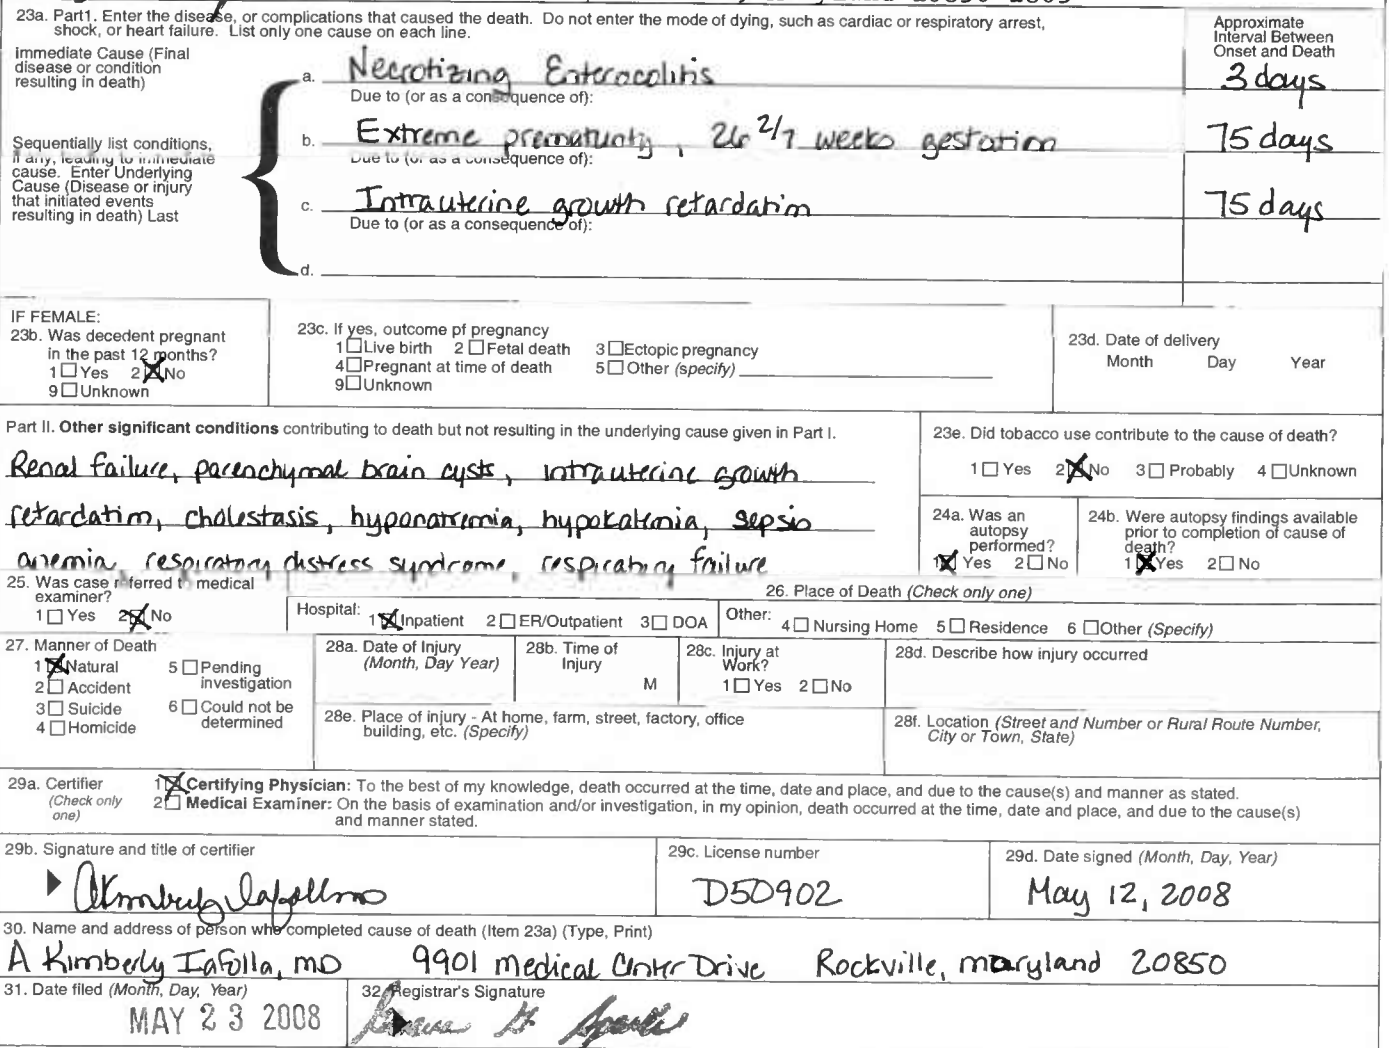 23a. Part1. Enter the disease, or complications that caused the death. Do not enter the mode of dying, such as cardiac or respiratory arrest,
shock, or heart failure. List only one cause on each line.
Approximate
Interval Between
Onset and Death
Immediate Cause (Final
disease or condition
resulting in death)
a. Necrotizing Enterocolitis 3 days
Due to (or as a consequence of):
Sequentially list conditions,
if any, leading to immediate
cause. Enter Underlying
Cause (Disease or injury
that initiated events
resulting in death) Last
b. Extreme prematurity, 26 2/7 weeks gestation 75 days
Due to (or as a consequence of):
c. Intrauterine growth retardation 75 days
Due to (or as a consequence of):
d.
IF FEMALE:
23b. Was decedent pregnant
in the past 12 months?
1 Yes 2 No
9 Unknown
23c. If yes, outcome pf pregnancy
1 Live birth 2 Fetal death 3 Ectopic pregnancy
4 Pregnant at time of death 5 Other (specify)
9 Unknown
23d. Date of delivery
Month Day Year
Part II. Other significant conditions contributing to death but not resulting in the underlying cause given in Part I.
Renal failure, parenchymal brain cysts, intrauterine growth
retardation, cholestasis, hyponatremia, hypokalemia, sepsis
anemia, respiratory distress syndrome, respiratory failure
23e. Did tobacco use contribute to the cause of death?
1 Yes 2 No 3 Probably 4 Unknown
24a. Was an
autopsy
performed?
1 Yes 2 No
24b. Were autopsy findings available
prior to completion of cause of
death?
1 Yes 2 No
25. Was case referred to medical
examiner?
1 Yes 2 No
26. Place of Death (Check only one)
Hospital: 1 Inpatient 2 ER/Outpatient 3 DOA Other: 4 Nursing Home 5 Residence 6 Other (Specify)
27. Manner of Death
1 Natural 5 Pending
investigation
2 Accident
3 Suicide 6 Could not be
determined
4 Homicide
28a. Date of Injury
(Month, Day Year)
28b. Time of
Injury
M
28c. Injury at
Work?
1 Yes 2 No
28d. Describe how injury occurred
28e. Place of injury - At home, farm, street, factory, office
building, etc. (Specify)
28f. Location (Street and Number or Rural Route Number,
City or Town, State)
29a. Certifier
(Check only
one)
1 Certifying Physician: To the best of my knowledge, death occurred at the time, date and place, and due to the cause(s) and manner as stated.
2 Medical Examiner: On the basis of examination and/or investigation, in my opinion, death occurred at the time, date and place, and due to the cause(s)
and manner stated.
29b. Signature and title of certifier
29c. License number
D50902
29d. Date signed (Month, Day, Year)
May 12, 2008
30. Name and address of person who completed cause of death (Item 23a) (Type, Print)
A Kimberly Iafolla, MD 9901 Medical Center Drive Rockville, Maryland 20850
31. Date filed (Month, Day, Year)
MAY 23 2008
32. Registrar's Signature